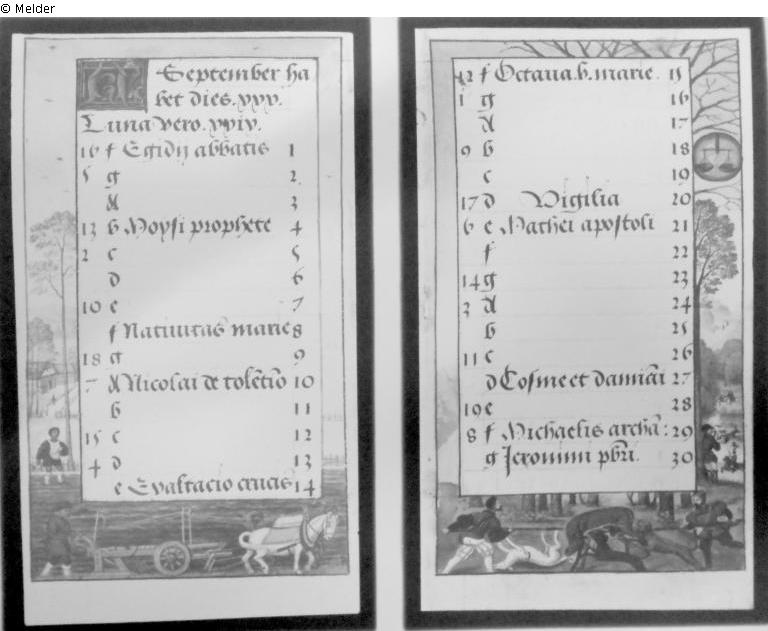 © Melder
September ha
bet dies. xxx.
Luna vero. xxix.
16 f Egidij abbatis 1
5 g 2
A 3
13 b Moysi prophete 4
2 c 5
d 6
10 e 7
f Nativitas marie 8
18 g 9
7 A Nicolai de tolētio 10
b 11
15 c 12
4 d 13
e Exaltacio crucis 14
12 f Octava. b. marie. 15
1 g 16
A 17
9 b 18
c 19
17 d Vigilia 20
6 e Mathei apostoli 21
f 22
14 g 23
3 A 24
b 25
11 c 26
d Cosme et damiāi 27
19 e 28
8 f Michaelis archā: 29
g Jeronimi pbri. 30